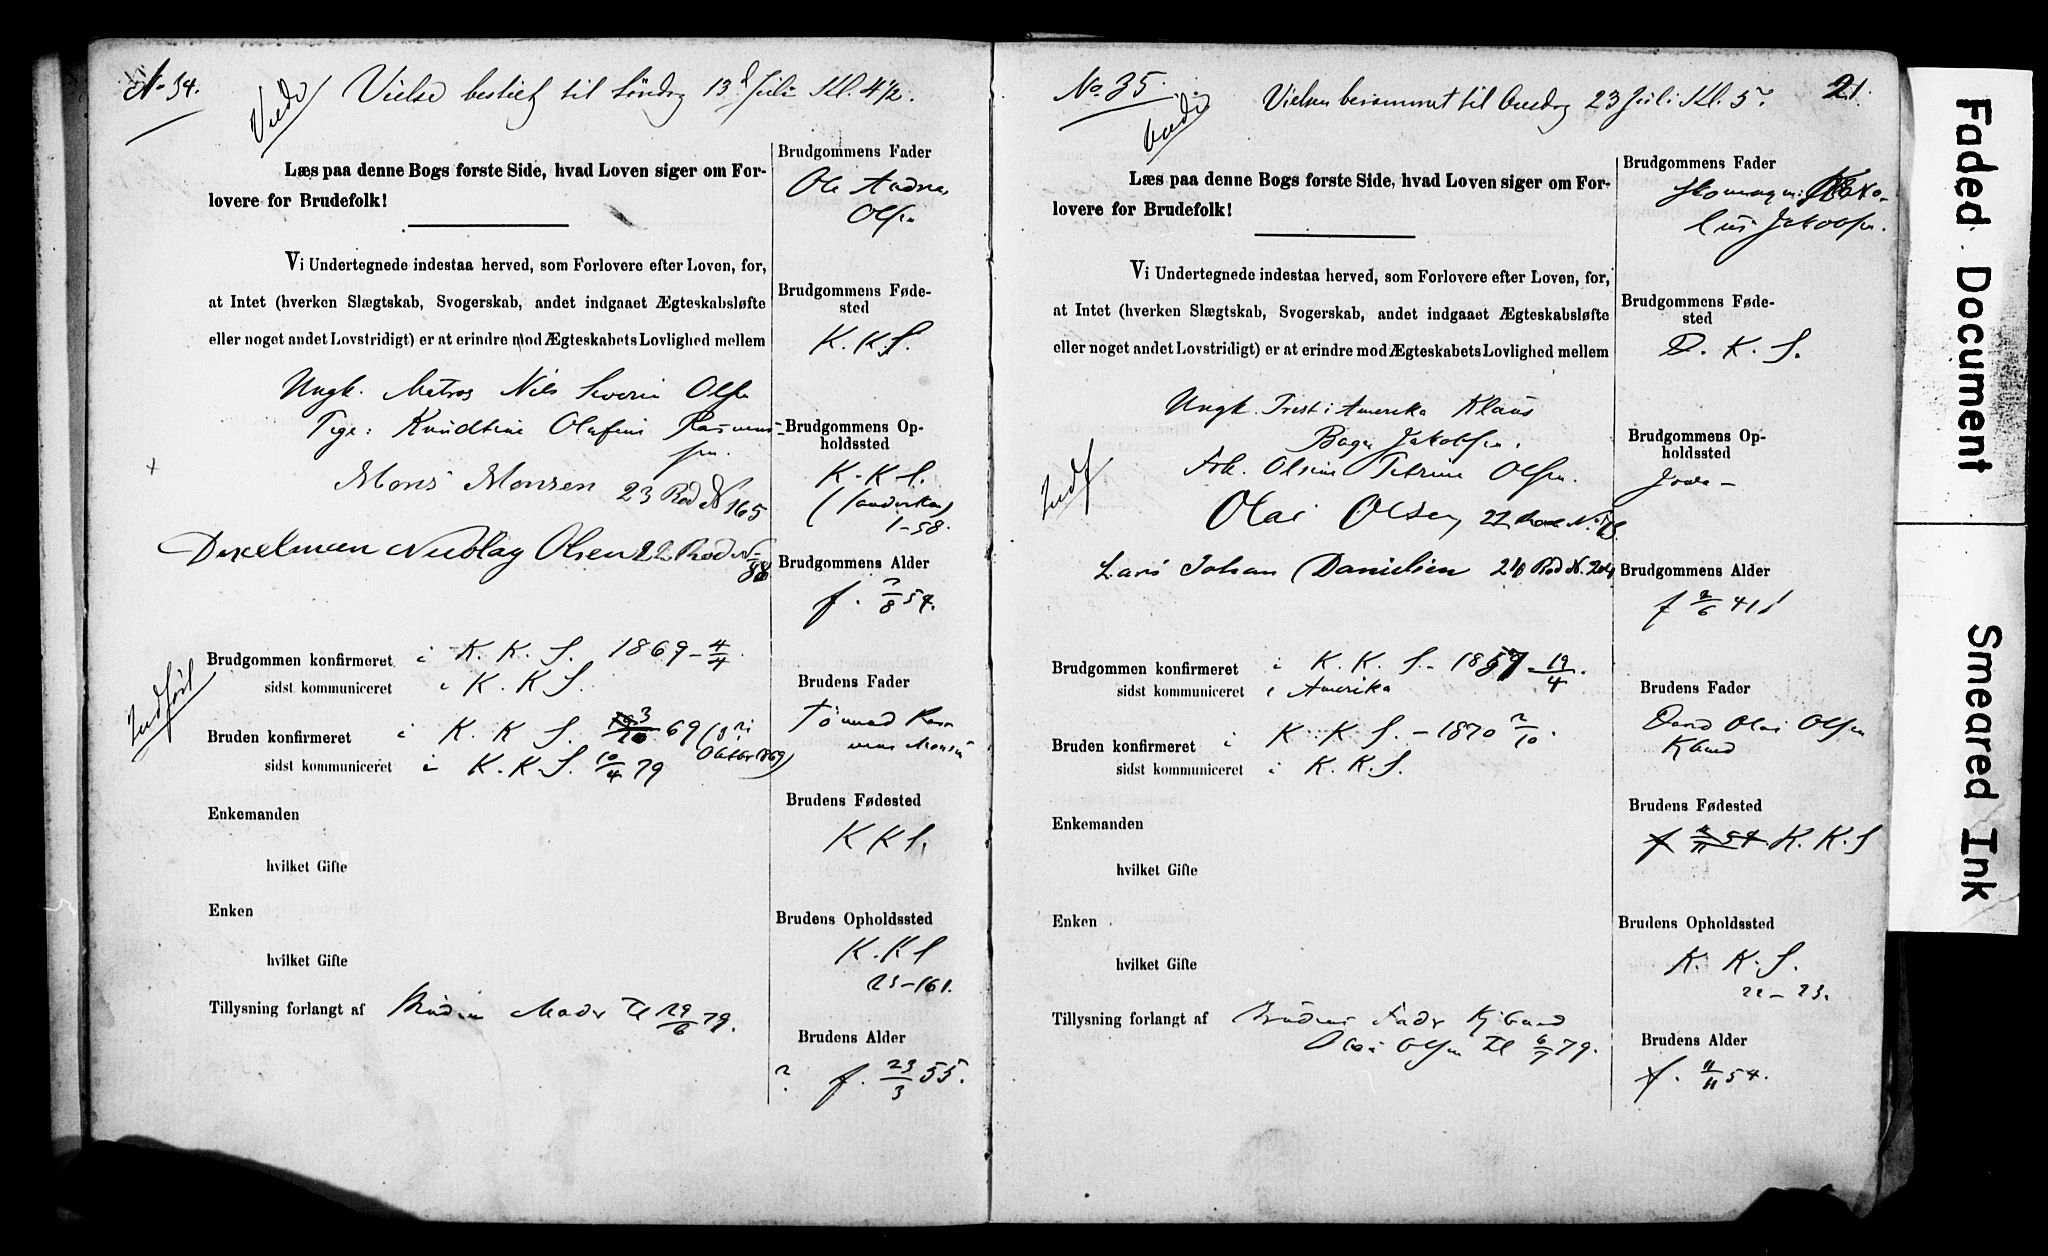 No 34.
Viede
Vielse bestilt til Søndag 13d Juli Kl. 4½.
Læs paa denne Bogs første Side, hvad Loven siger om For-
lovere for Brudefolk!
Vi Undertegnede indestaa herved, som Forlovere efter Loven, for,
at Intet (hverken Slægtskab, Svogerskab, andet indgaaet Ægteskabsløfte
eller noget andet Lovstridigt) er at erindre mod Ægteskabets Lovlighed mellem
Ungk. Matros Nils Severin Olsen
Pige: Knudtine Olufine Rasmus-
sen.
Mons Monsen 23 Rod No 165
Nicolay Olsen 22 Rod No
88
Indført
Brudgommen konfirmeret i K. K. S. 1869 - 4/4.
sidst kommuniceret i K. K S.
Bruden konfirmeret i K. K S. 3/10 69 (3die
Oktbr 1869)
sidst kommuniceret i K. K. S. 10/4 79
Enkemanden
hvilket Gifte
Enken
hvilket Gifte
Tillysning forlangt af Brudens Moder Tl 29/6 79.
Brudgommens Fader
Ole Andreas
Olsen
Brudgommens Føde-
sted
K. K. S.
Brudgommens Op-
holdssted
K. K. S.
1-58.
Brudgommens Alder
f. 7/8 54.
Brudens Fader
Tønnes Ras-
mus Monsen
Brudens Fødested
K K S.
Brudens Opholdssted
K. K S
23-161.
Brudens Alder
? f. 23/3 55.
No. 35.
Viede
Vielsen berammet til Onsdag 23 Juli Kl. 5.
21.
Læs paa denne Bogs første Side, hvad Loven siger om For-
lovere for Brudefolk!
Vi Undertegnede indestaa herved, som Forlovere efter Loven, for,
at Intet (hverken Slægtskab, Svogerskab, andet indgaaet Ægteskabsløfte
eller noget andet Lovstridigt) er at erindre mod Ægteskabets Lovlighed mellem
Ungk. Præst i Amerika Klaus
Jakobsen.
Frk. Olsine Petrine Olsen.
Indf
Olai Olsen, 22 Rode No.
Lars Johan Danielsen 24 Rod N. 204
Brudgommen konfirmeret i K. K. S - 1857 - 19/4.
sidst kommuniceret i Amerika
Bruden konfirmeret i K K S. - 1870 2/10.
sidst kommuniceret i K. K. S.
Enkemanden
hvilket Gifte
Enken
hvilket Gifte
Tillysning forlangt af Brudens Fader Kjbmd
Olai Olsen Tl 6/7 79.
Brudgommens Fader
Skomager
Jakobsen.
Brudgommens Føde-
sted
D. K. S.
Brudgommens Op-
holdssted
Jowa -
Brudgommens Alder
f 2/6 41
Brudens Fader
David Olai Olsen
Kjbmd
Brudens Fødested
f 11/11 54 K. K. S
Brudens Opholdssted
K. K. S.
22-23.
Brudens Alder
f. 11/11 54.
Faded Document
Smeared Ink